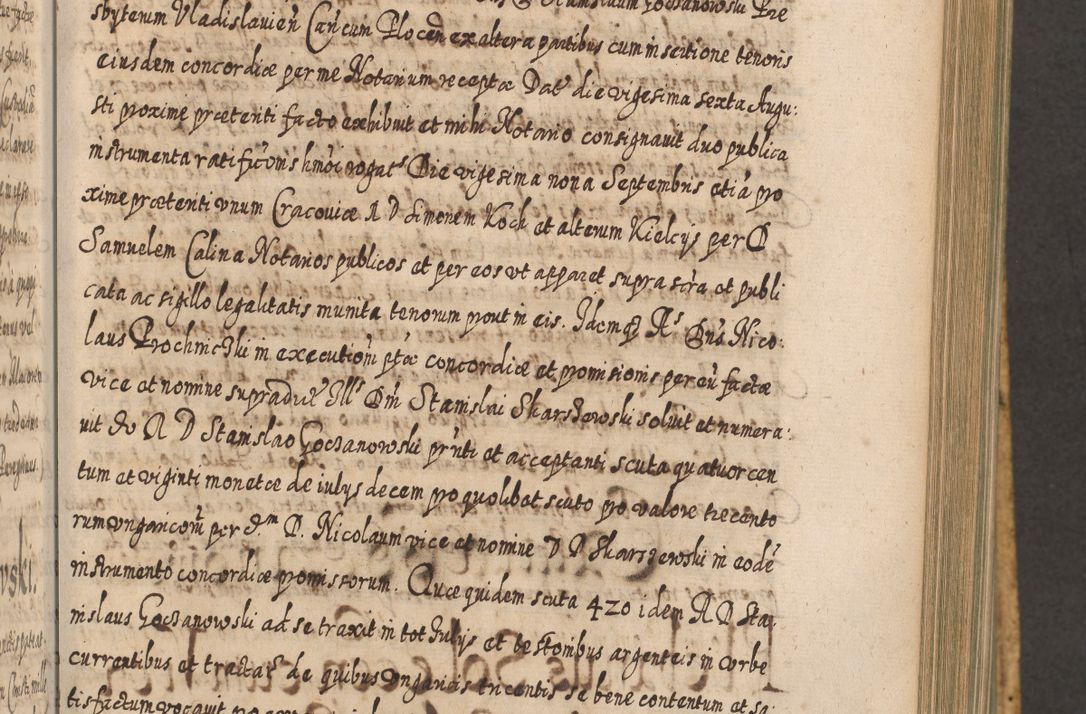 sbyterum Vladislavien̄ Can cum Plocen̄ ex altera partibus cum insertione tenoris
eiusdem concordiæ per me Notarium receptæ Dat die vigesima sexta Augu:
sti proxime præteriti facto exhibuit et mihi Notario consignauit duo publica
instrumenta ratificōnis hm̄oi rogat Die vigesima nona Septembris etiā pro
xime præteriti vnum Cracoviæ A D Simonem Koch et alterum Kielcijs per D
Samuelem Calina Notarios publicos et per eos vt apparet supra scra et publi
cata ac sigillo legalitatis munita tenorum prout in eis. Idemq Rs Dn̄s Nico:
laus Prochniczki in executionē ptæ concordiæ et promissionis per eū factæ
vice et nomine supradict Ill Dn̄i Stanislai Skarszewski soluit et numera:
uit do A D Stanislao Goczanowski prn̄ti et acceptanti scuta quatuorcen
tum et viginti monetæ de iulys decem pro quolibet scuto pro valore trecento
rum vngaricorū per d.m D. Nicolaum vice et nomine D D Skarszewski in eodē
instrumento concordiæ promissorum. Quæ quidem scuta 420 idem R D Sta:
nislaus Goczanowski ad se traxit in tot Iulys et testonibus argenteis in vrbe
currentibus et tractat de quibus vngaricis tricentis se bene contentum et sa:
tisfactum vocauit